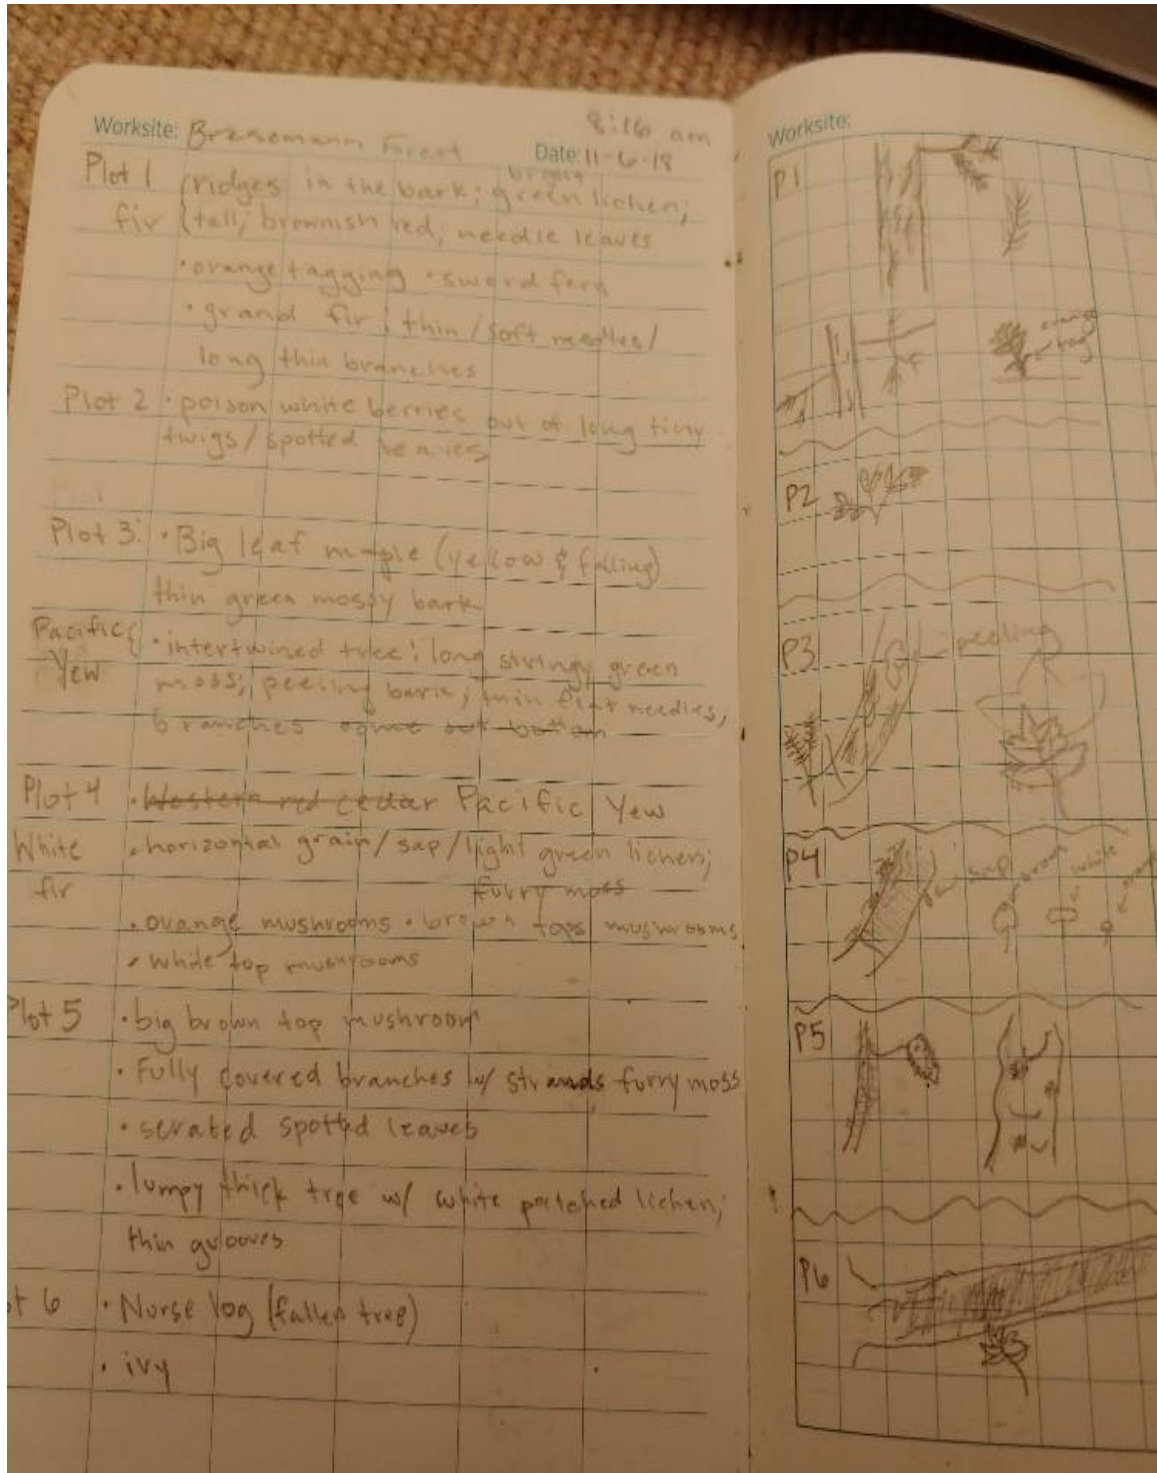 8:16 am
Worksite: Bresemann Forest Date: 11-6-18
Plot 1 ridges in the bark; bright green lichen;
fir tall; brownish red; needle leaves
• orange tagging • sword fern
• grand fir: thin/soft needles/
long thin branches
Plot 2 • poison white berries out of long tiny
twigs/spotted leaves
Plot 3: • Big leaf maple (yellow & falling)
thin green mossy bark
Pacific Yew • intertwined tree: long stringy green
moss; peeling bark; thin flat needles,
branches come out bottom
Plot 4 • Western red cedar Pacific Yew
White fir • horizontal grain/sap/light green lichen;
furry moss
• orange mushrooms • brown tops mushrooms
• white top mushrooms
Plot 5 • big brown top mushroom
• Fully covered branches w/ strands furry moss
• serated spotted leaves
• lumpy thick tree w/ white patched lichen;
thin grooves
ot 6 • Nurse log (fallen tree)
• ivy
Worksite:
P1
orange
tag
P2
P3
peeling
P4
sap
brown
white
orange
P5
P6